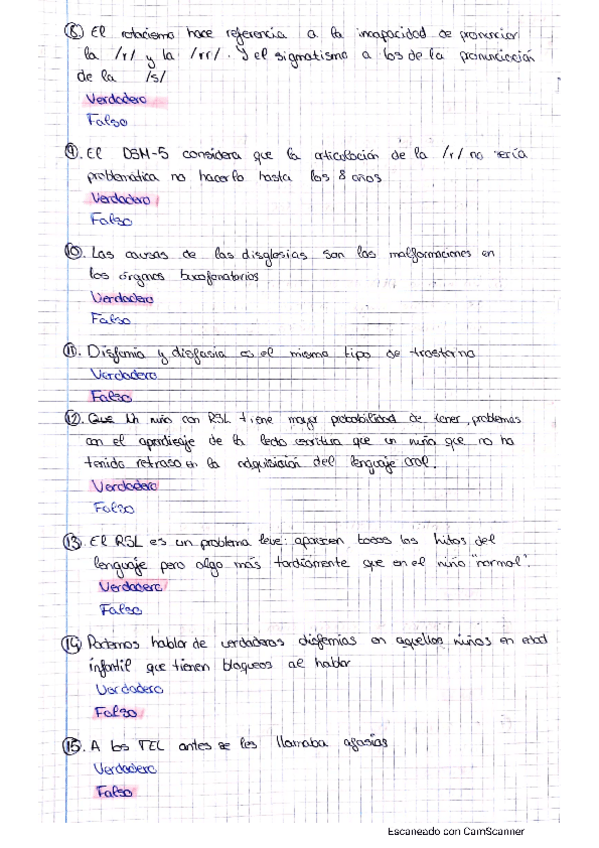 ⑧ El rotacismo hace referencia a la incapacidad de pronunciar
la /r/ y la /rr/. Y el sigmatismo a los de la pronunciación
de la /s/
Verdadero
Falso
⑨. El DSM-5 considera que la articulación de la /r/ no sería
problemática no hacerlo hasta los 8 años
Verdadero
Falso
⑩. Las causas de las disglosias son las malformaciones en
los órganos bucofonatorios
Verdadero
Falso
⑪. Disfemia y disfasia es el mismo tipo de trastorno
Verdadero
Falso
⑫. Que Un niño con RSL tiene mayor probabilidad de tener problemas
con el aprendizaje de la lecto escritura que un niño que no ha
tenido retraso en la adquisición del lenguaje oral.
Verdadero
Falso
⑬. El RSL es un problema leve: aparecen todos los hitos del
lenguaje pero algo más tardiamente que en el niño "normal".
Verdadero
Falso
⑭ Podemos hablar de verdaderas disfemias en aquellos niños en edad
infantil que tienen bloqueos al hablar
Verdadero
Falso
⑮. A los TEL antes se les llamaba afasias
Verdadero
Falso
Escaneado con CamScanner